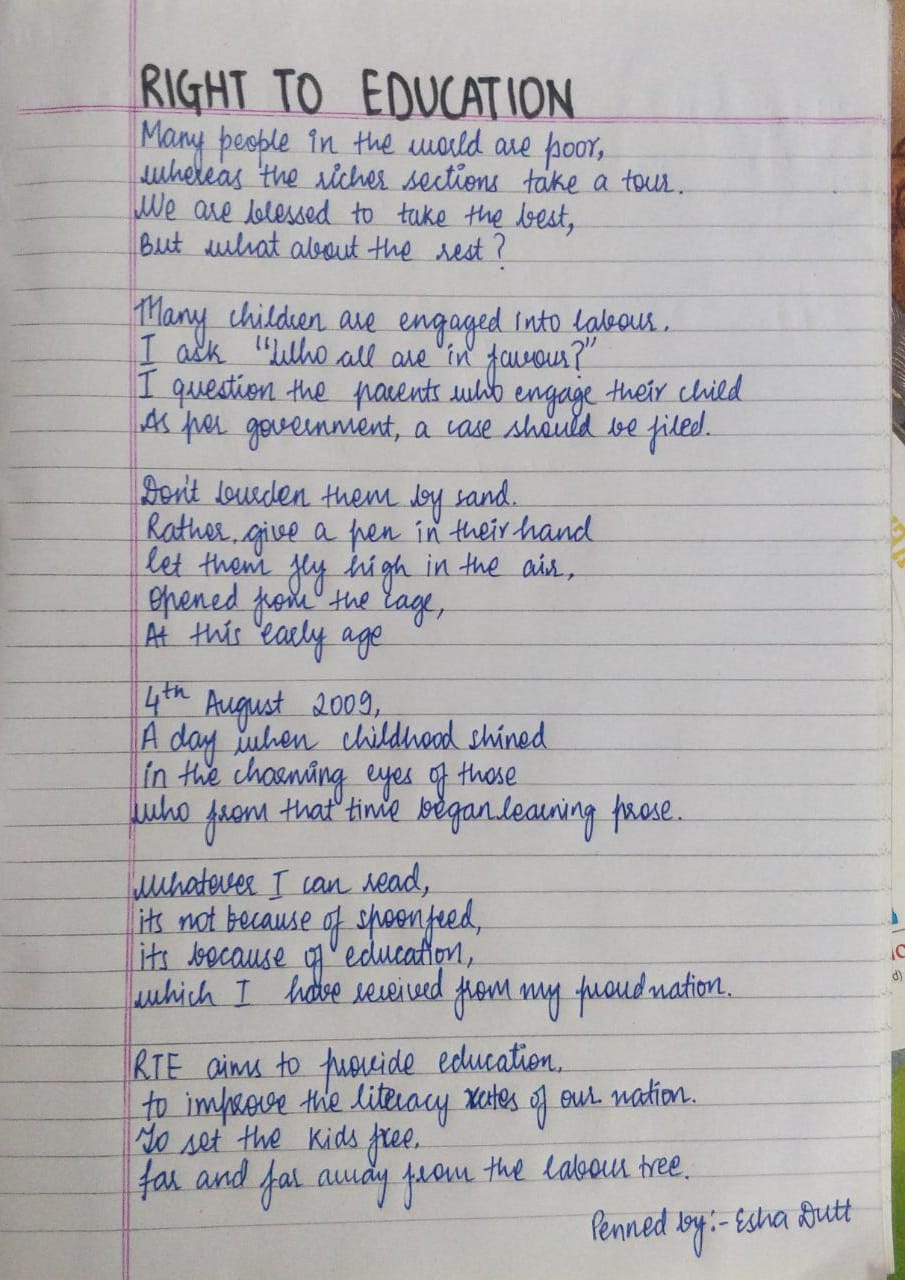 RIGHT TO EDUCATION
Many people in the world are poor,
whereas the richer sections take a tour.
We are blessed to take the best,
But what about the rest?
Many children are engaged into labour.
I ask "Who all are in favour?"
I question the parents who engage their child
As per government, a case should be filed.
Don't burden them by sand.
Rather, give a pen in their hand
let them fly high in the air,
Opened from the cage,
At this early age
4th August 2009,
A day when childhood shined
in the charming eyes of those
who from that time began learning prose.
Whatever I can read,
its not because of spoonfeed,
its because of education,
which I have received from my proud nation.
RTE aims to provide education,
to improve the literacy rates of our nation.
To set the kids free,
far and far away from the labour tree.
Penned by:- Esha Dutt